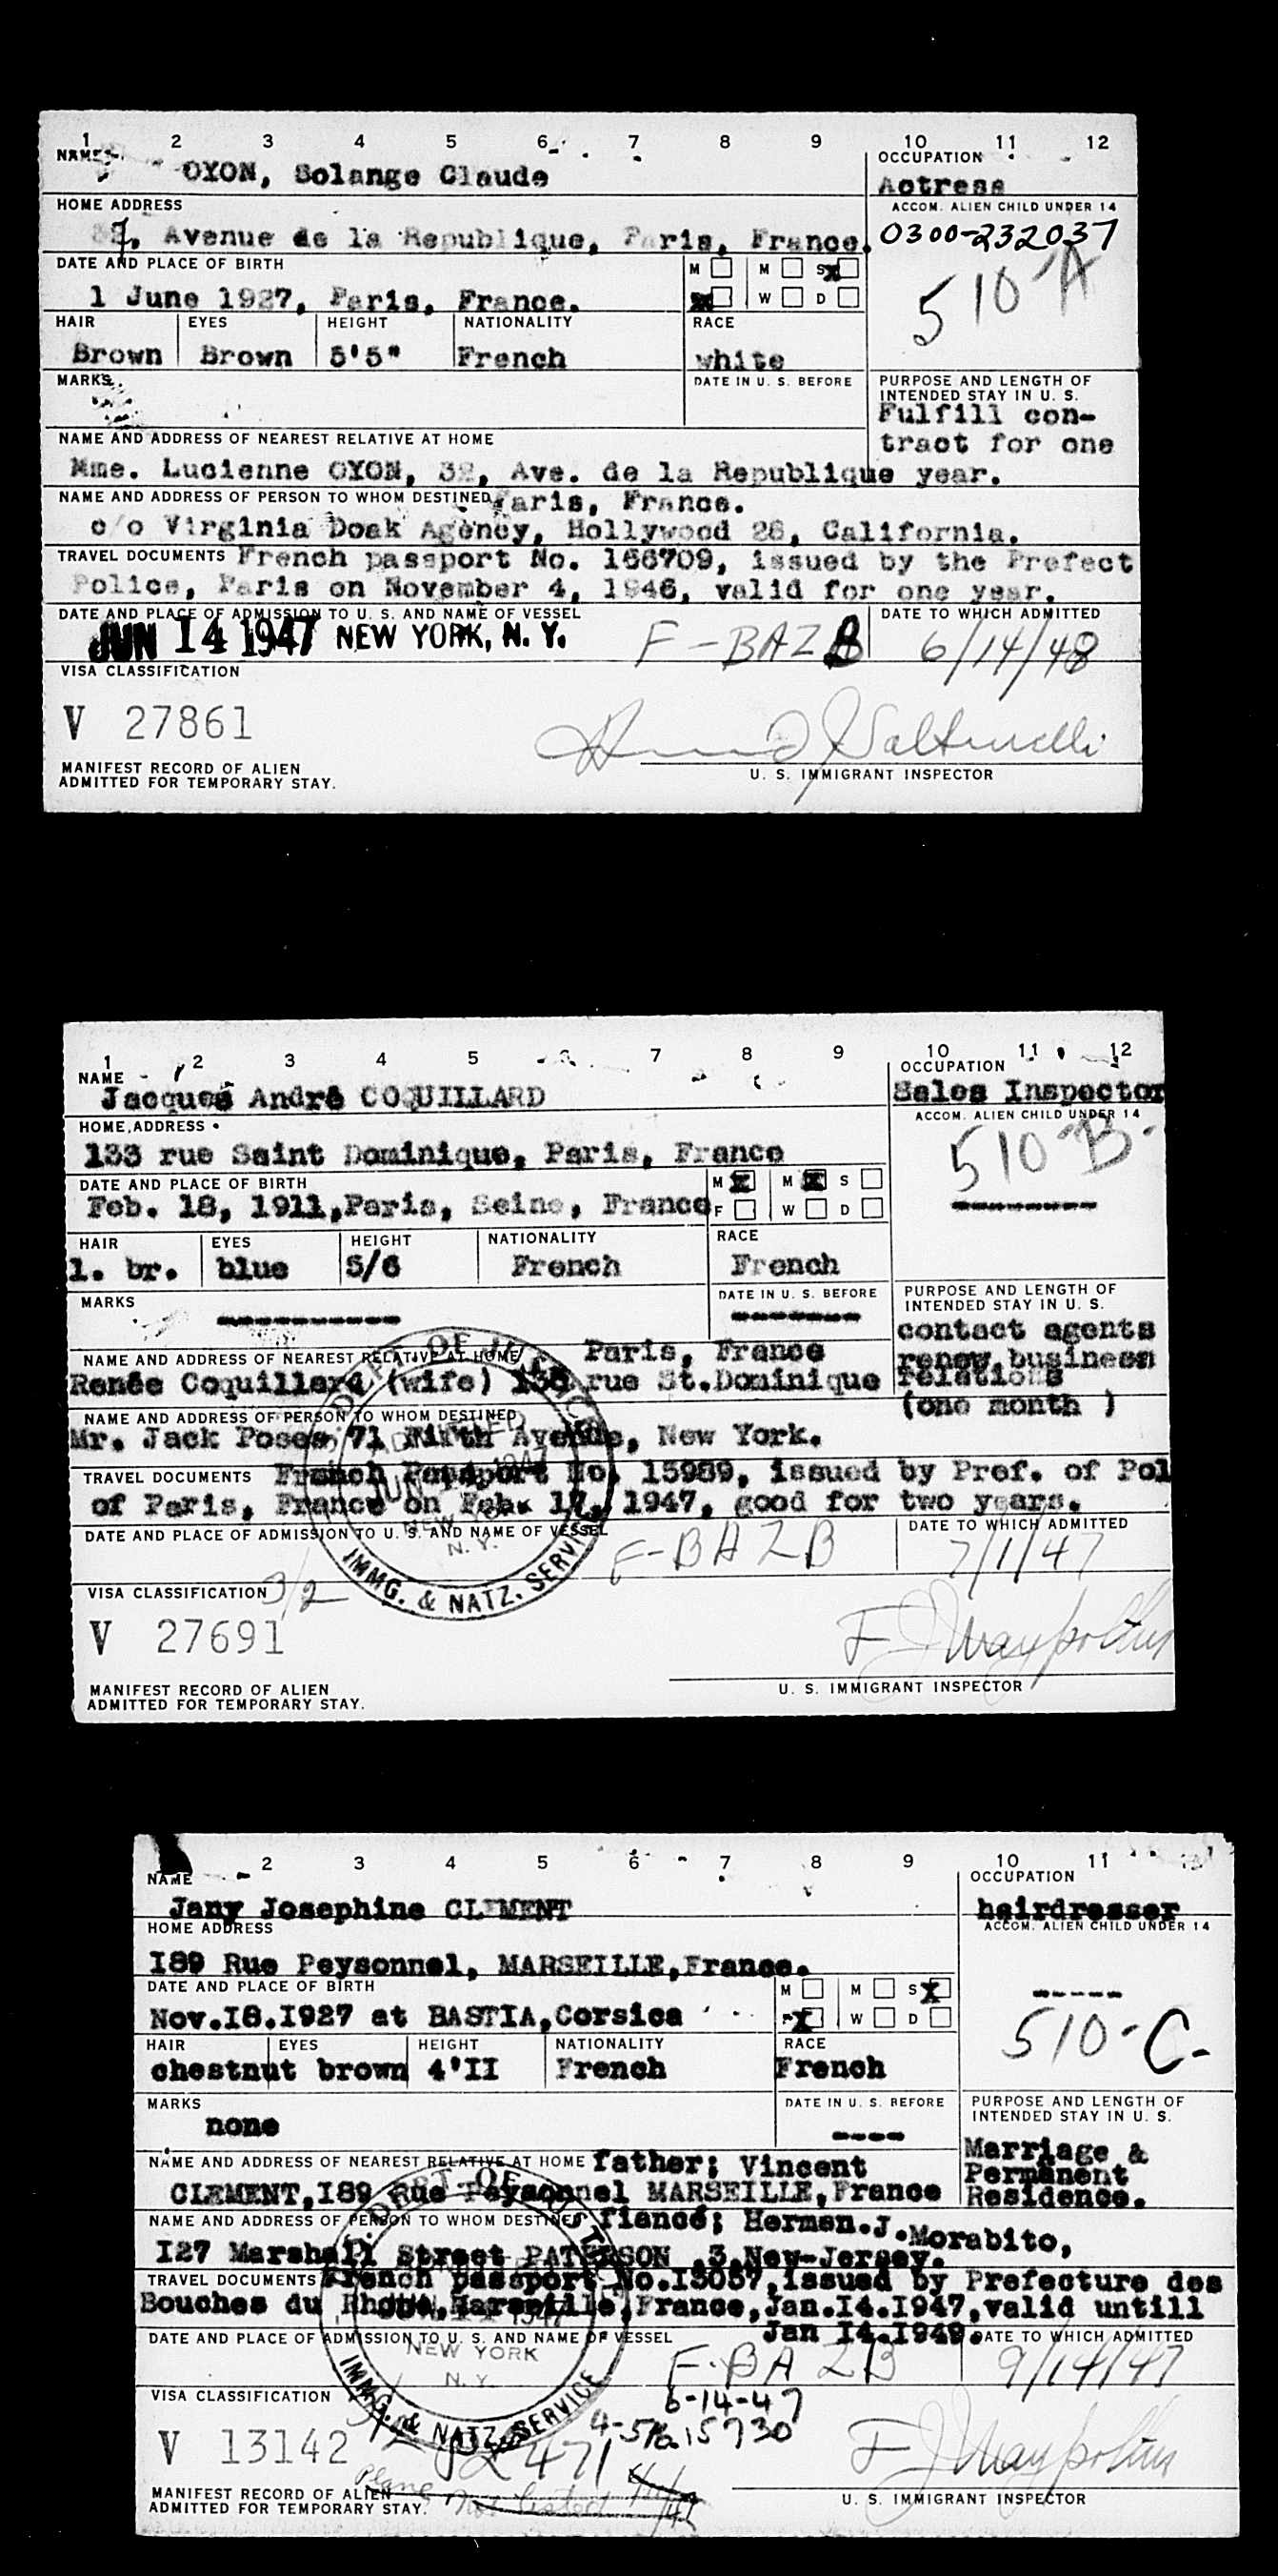 1 2 3 4 5 6 7 8 9 10 11 12
NAME
OCCUPATION
OYON, Solange Claude
Actress
HOME ADDRESS
ACCOM. ALIEN CHILD UNDER 14
Avenue de la Republique, Paris, France.
0300-232037
510-A
DATE AND PLACE OF BIRTH
M M S X
1 June 1927, Paris, France.
X W D
HAIR EYES HEIGHT NATIONALITY RACE
Brown Brown 5'5" French white
MARKS
DATE IN U. S. BEFORE
PURPOSE AND LENGTH OF
INTENDED STAY IN U. S.
Fulfill con-
tract for one
year.
NAME AND ADDRESS OF NEAREST RELATIVE AT HOME
Mme. Lucienne OYON, 32, Ave. de la Republique
NAME AND ADDRESS OF PERSON TO WHOM DESTINED
Paris, France.
c/o Virginia Doak Agency, Hollywood 28, California.
TRAVEL DOCUMENTS French passport No. 166709, issued by the Prefect
Police, Paris on November 4, 1946, valid for one year.
DATE AND PLACE OF ADMISSION TO U. S. AND NAME OF VESSEL
DATE TO WHICH ADMITTED
JUN 14 1947 NEW YORK, N. Y. F-BAZB 6/14/48
VISA CLASSIFICATION
V 27861
MANIFEST RECORD OF ALIEN
ADMITTED FOR TEMPORARY STAY.
U. S. IMMIGRANT INSPECTOR
1 2 3 4 5 6 7 8 9 10 11 12
NAME
OCCUPATION
Jacques André COQUILLARD
Sales Inspector
HOME ADDRESS
ACCOM. ALIEN CHILD UNDER 14
133 rue Saint Dominique, Paris, France
510-B
DATE AND PLACE OF BIRTH
M X M X S
Feb. 18, 1911, Paris, Seine, France
F W D
----------
HAIR EYES HEIGHT NATIONALITY RACE
l. br. blue 5/6 French French
MARKS
DATE IN U. S. BEFORE
PURPOSE AND LENGTH OF
INTENDED STAY IN U. S.
contact agents
renew business
relations
(one month )
NAME AND ADDRESS OF NEAREST RELATIVE AT HOME
Paris, France
Renée Coquillard (wife) 133 rue St.Dominique
NAME AND ADDRESS OF PERSON TO WHOM DESTINED
Mr. Jack Poses 71 Fifth Avenue, New York.
TRAVEL DOCUMENTS French Passport No. 15989, issued by Pref. of Pol
of Paris, France on Feb. 17, 1947, good for two years.
DATE AND PLACE OF ADMISSION TO U. S. AND NAME OF VESSEL
DATE TO WHICH ADMITTED
NEW YORK
N. Y.
IMMG. & NATZ. SERVICE
F-BAZB
7/1/47
VISA CLASSIFICATION 3/2
V 27691
MANIFEST RECORD OF ALIEN
ADMITTED FOR TEMPORARY STAY.
U. S. IMMIGRANT INSPECTOR
2 3 4 5 6 7 8 9 10 11
NAME
OCCUPATION
Jany Josephine CLEMENT
hairdresser
HOME ADDRESS
ACCOM. ALIEN CHILD UNDER 14
I89 Rue Peysonnel, MARSEILLE,France.
DATE AND PLACE OF BIRTH
M M S X
-----
Nov.I8.I927 at BASTIA,Corsica
F X W D
510-C-
HAIR EYES HEIGHT NATIONALITY RACE
chestnut brown 4'II French French
MARKS
DATE IN U. S. BEFORE
PURPOSE AND LENGTH OF
INTENDED STAY IN U. S.
none
----
Marriage &
Permanent
Residence.
NAME AND ADDRESS OF NEAREST RELATIVE AT HOME father; Vincent
CLEMENT,I89 Rue Peysonnel MARSEILLE,France
NAME AND ADDRESS OF PERSON TO WHOM DESTINED fiancé; Herman.J.Morabito,
I27 Marshall Street PATERSON ,3,New-Jersey.
TRAVEL DOCUMENTS French passport No.I3057,issued by Prefecture des
Bouches du Rhone,Marseille,France,Jan.I4.I947,valid untill
Jan I4.I949.
DATE AND PLACE OF ADMISSION TO U. S. AND NAME OF VESSEL
DATE TO WHICH ADMITTED
NEW YORK
N. Y.
IMMG. & NATZ. SERVICE
F-BAZB 9/14/47
6-14-47
VISA CLASSIFICATION
V 13142
Plane Not listed
MANIFEST RECORD OF ALIEN
ADMITTED FOR TEMPORARY STAY.
U. S. IMMIGRANT INSPECTOR